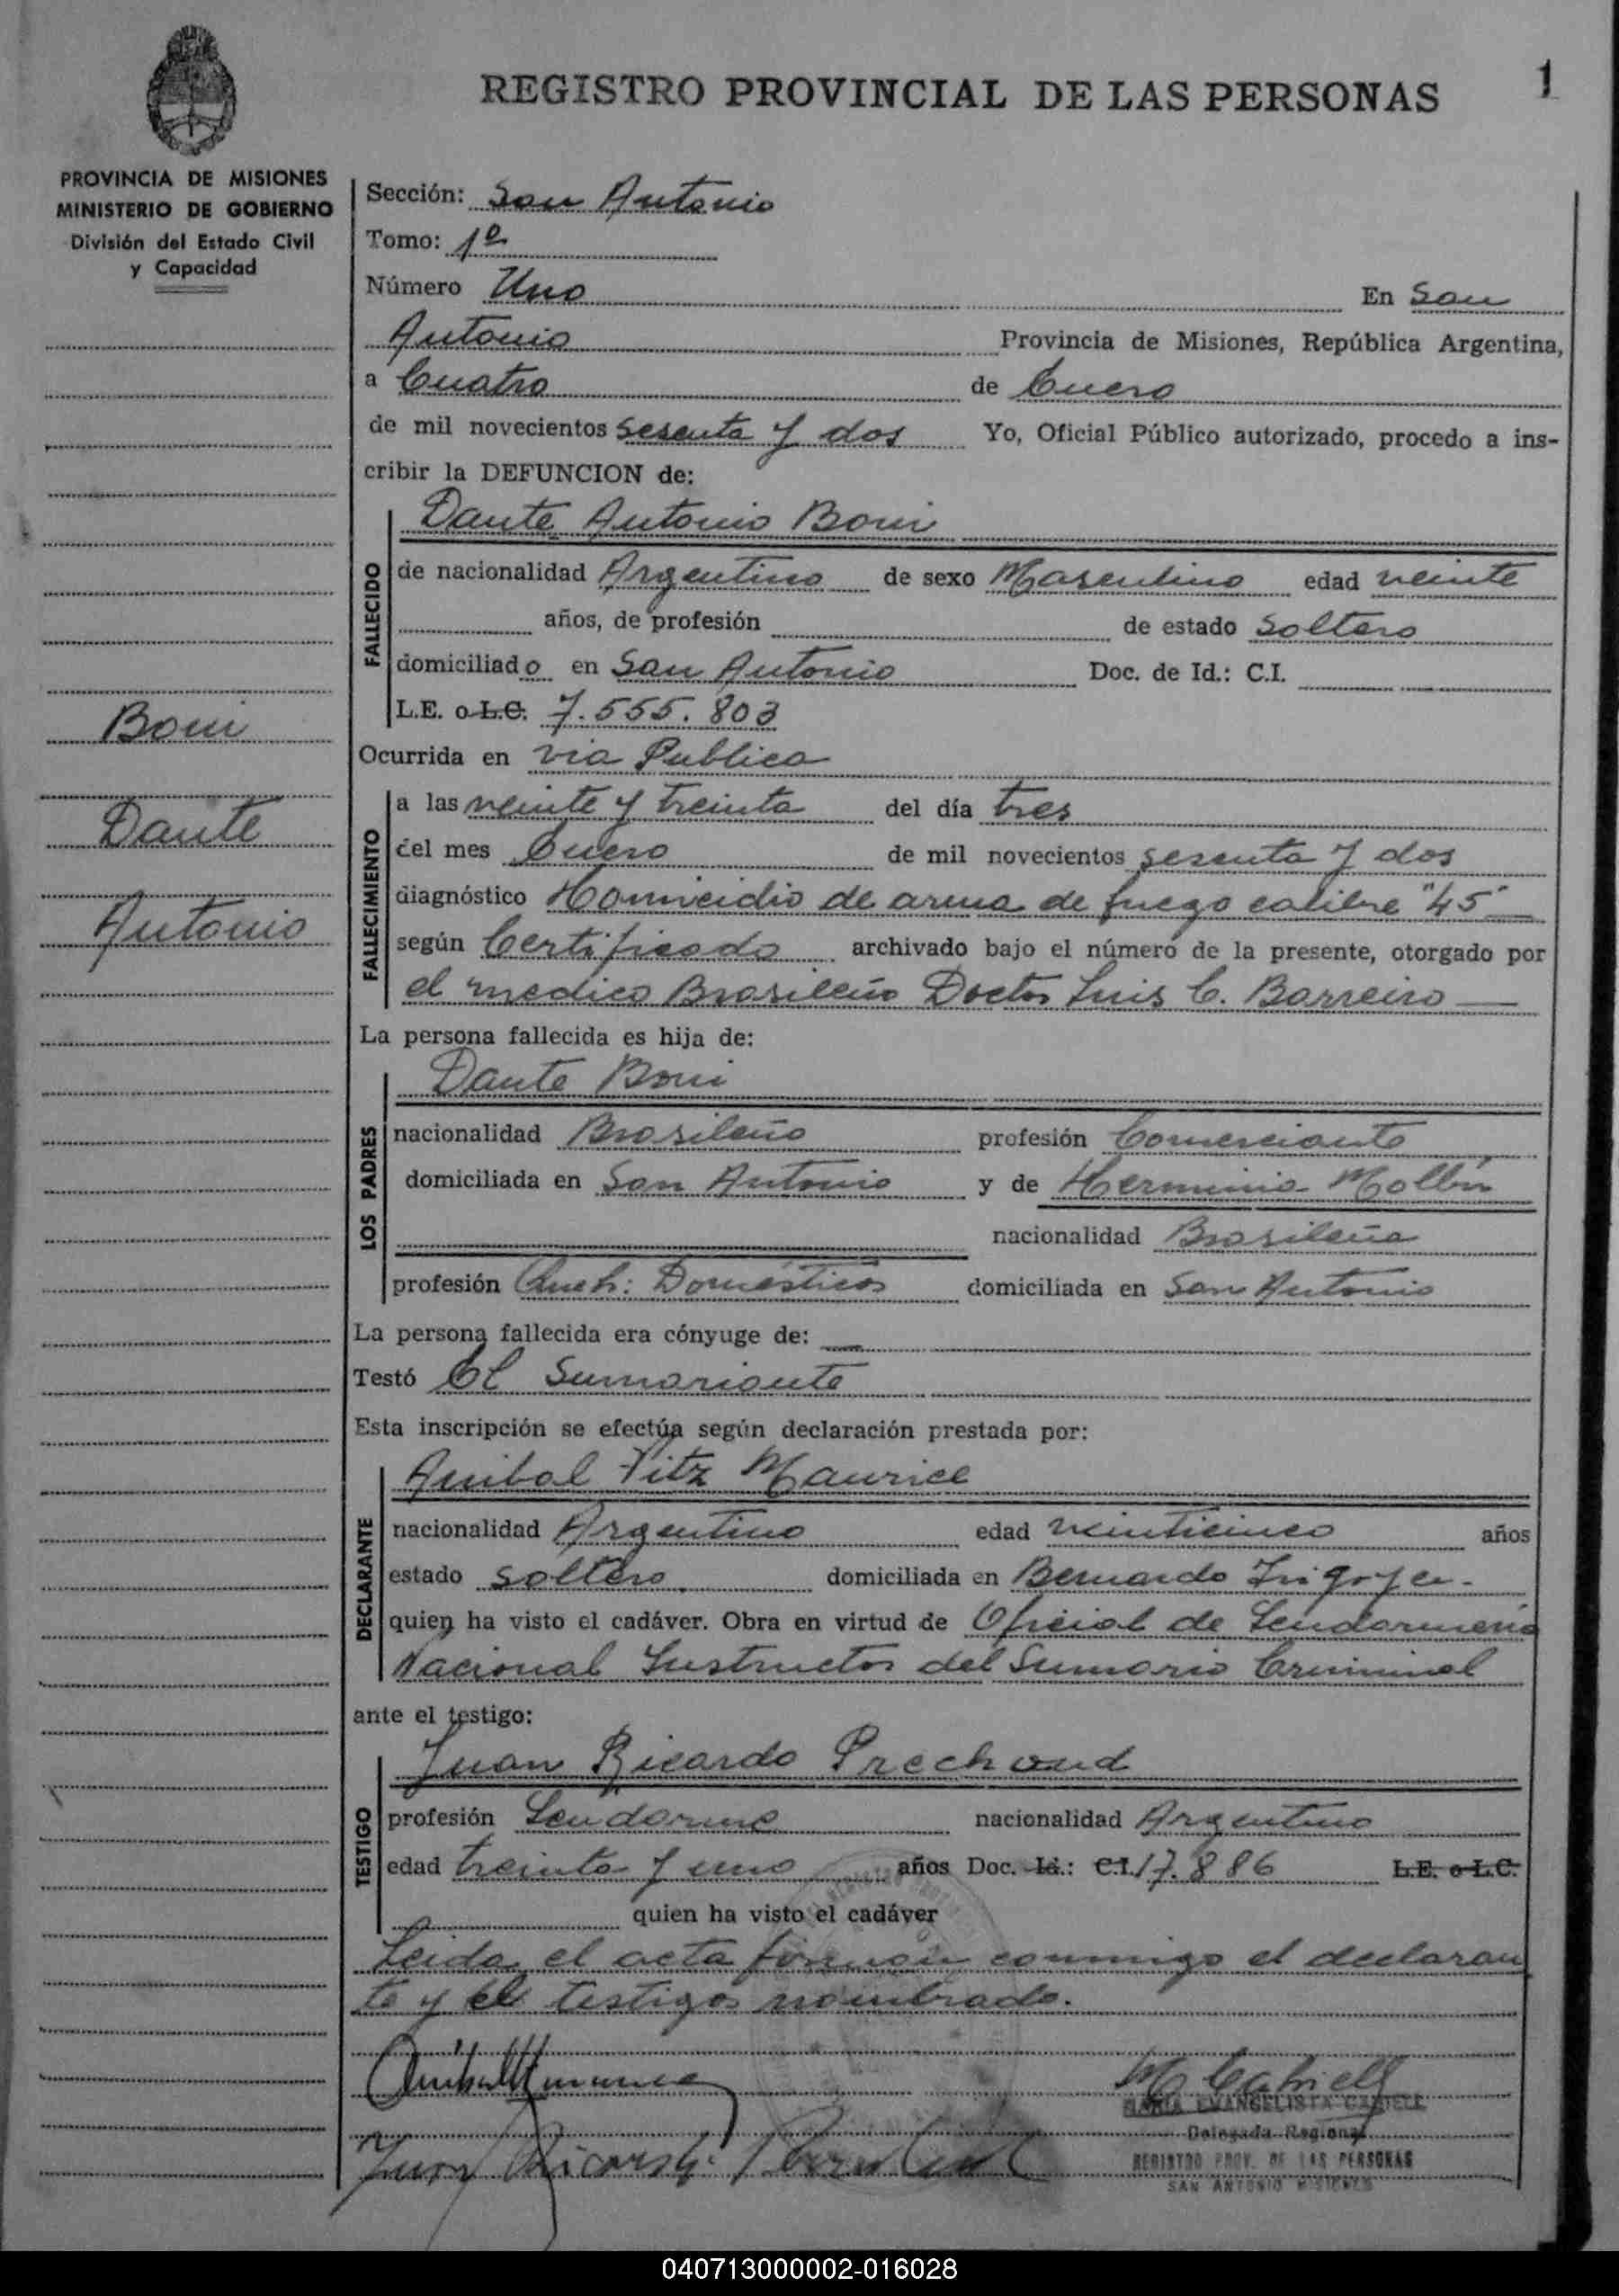 REGISTRO PROVINCIAL DE LAS PERSONAS
1
PROVINCIA DE MISIONES
MINISTERIO DE GOBIERNO
División del Estado Civil
y Capacidad
Boni
Dante
Antonio
Sección: San Antonio
Tomo: 1º
Número Uno En San
Antonio Provincia de Misiones, República Argentina,
a Cuatro de Enero
de mil novecientos sesenta y dos Yo, Oficial Público autorizado, procedo a ins-
cribir la DEFUNCION de:
Dante Antonio Boni
FALLECIDO
de nacionalidad Argentino de sexo Masculino edad veinte
años, de profesión de estado soltero
domiciliado en San Antonio Doc. de Id.: C.I.
L.E. o L.C. 7.555.803
Ocurrida en via Publica
FALLECIMIENTO
a las veinte y treinta del día tres
del mes Enero de mil novecientos sesenta y dos
diagnóstico Homicidio de arma de fuego calibre "45"
según Certificado archivado bajo el número de la presente, otorgado por
el medico Brasileño Doctor Luis C. Barreiro
La persona fallecida es hija de:
Dante Boni
LOS PADRES
nacionalidad Brasileño profesión Comerciante
domiciliada en San Antonio y de Herminia
nacionalidad Brasileña
profesión Domésticos domiciliada en San Antonio
La persona fallecida era cónyuge de: —
Testó El Sumariante
Esta inscripción se efectúa según declaración prestada por:
Anibal Fitz Maurice
DECLARANTE
nacionalidad Argentino edad veinticinco años
estado soltero domiciliada en Bernardo Irigoyen-
quien ha visto el cadáver. Obra en virtud de Oficial de Gendarmeria
Nacional Instructor del Sumario Criminal
ante el testigo:
Juan Ricardo
TESTIGO
profesión Gendarme nacionalidad Argentino
edad treinta y uno años Doc. Id.: C.I. 17.886 L.E. o L.C.
quien ha visto el cadáver
Leida el acta firman conmigo el declaran
te y el testigo nombrado.
MARIA EVANGELISTA
Delegada Regional
REGISTRO PROV. DE LAS PERSONAS
SAN ANTONIO MISIONES
040713000002-016028